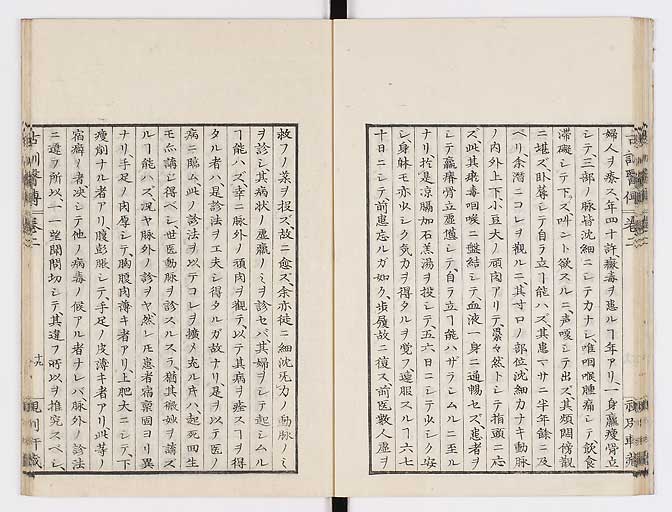 婦人ヲ療ス年四十許癥毒ヲ患ルヿ年アリ一身羸痩骨立
シテ三部ノ脉皆沈細ニシテ力ナシ唯咽喉腫痛シテ飲食
滞礙シテ下ズ叫ント欲スルニ声嗄シテ出ズ其煩悶傍観
ニ堪ズ卧蓐シテ自ラ立ヿ能ハズ其患ヒサニ半年餘ニ及
ベリ余潜ニコレヲ観ルニ其寸口ノ部位沈細力ナキ動脉
ノ内外上下小豆大ノ頑肉アリテ累々然トシテ指頭ニ応
ズ此其痼毒咽喉ニ盤結シテ血液一身ニ通暢セズ患者ヲ
シテ羸瘠骨立虚憊シテ自ラ立ヿ能ハザラシムルニ至ル
ナリ於是涼膈加石羔湯ヲ投シテ五六日ニシテ少シク安
シ身躰モ亦少シク気力ヲ得タルヲ覚フ連服スルヿ六七
十日ニシテ前患忘ルガ如ク歩履故ニ復ス前医数人虚ヲ
救フノ薬ヲ投ズ故ニ愈ズ余亦徒ニ細沈无力ノ動脉ノミ
ヲ診シ其病状ノ虚羸ノミヲ診セバ其婦ヲシテ起シムル
ヿ能ハズ幸ニ脉外ノ頑肉ヲ観テ以テ其病ヲ痊スヿヲ得
タル者ハ是診法ヲ工夫シ得タルガ故ナリ是ヲ以テ医ノ
病ニ臨ム此ノ診法ヲ以テコレヲ擴メ充ル片ハ起死回生
モ亦講シ得ベシ世医動脉ヲ診スルスラ猶其微妙ヲ講ズ
ルヿ能ハズ况ヤ脉外ノ診ヲヤ然レ𪜈患者宿禀固ヨリ異
ナリ手足ノ肉厚シテ胸腹肉薄キ者アリ上肥大ニシテ下
痩削ナル者アリ腹彭脹シテ手足ノ皮薄キ者アリ此等ノ
宿痾ノ者决シテ他ノ病毒ノ候アル者ナレバ脉外ノ診法
ニ遵フ所以一一望聞問切シテ其違フ所以ヲ推究スベシ
古訓醫傳 巻二
十九